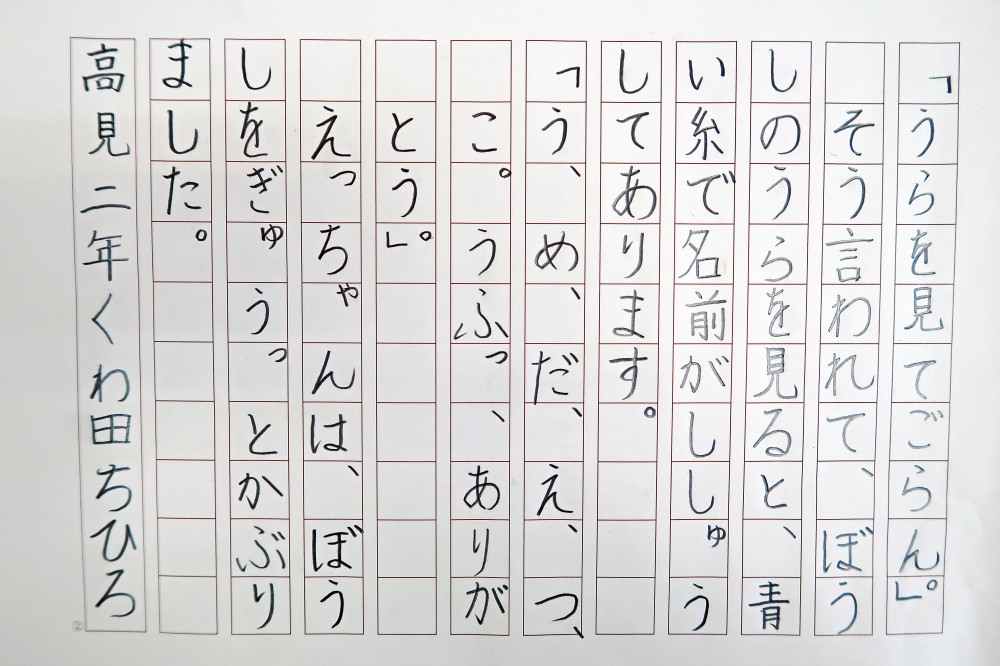 「うらを見てごらん。」
そう言われて、ぼう
しのうらを見ると、青
い糸で名前がししゅう
してあります。
「う、め、だ、え、つ、
こ。うふっ、ありが
とう。」
えっちゃんは、ぼう
しをぎゅうっとかぶり
ました。
高見二年くわ田ちひろ
②